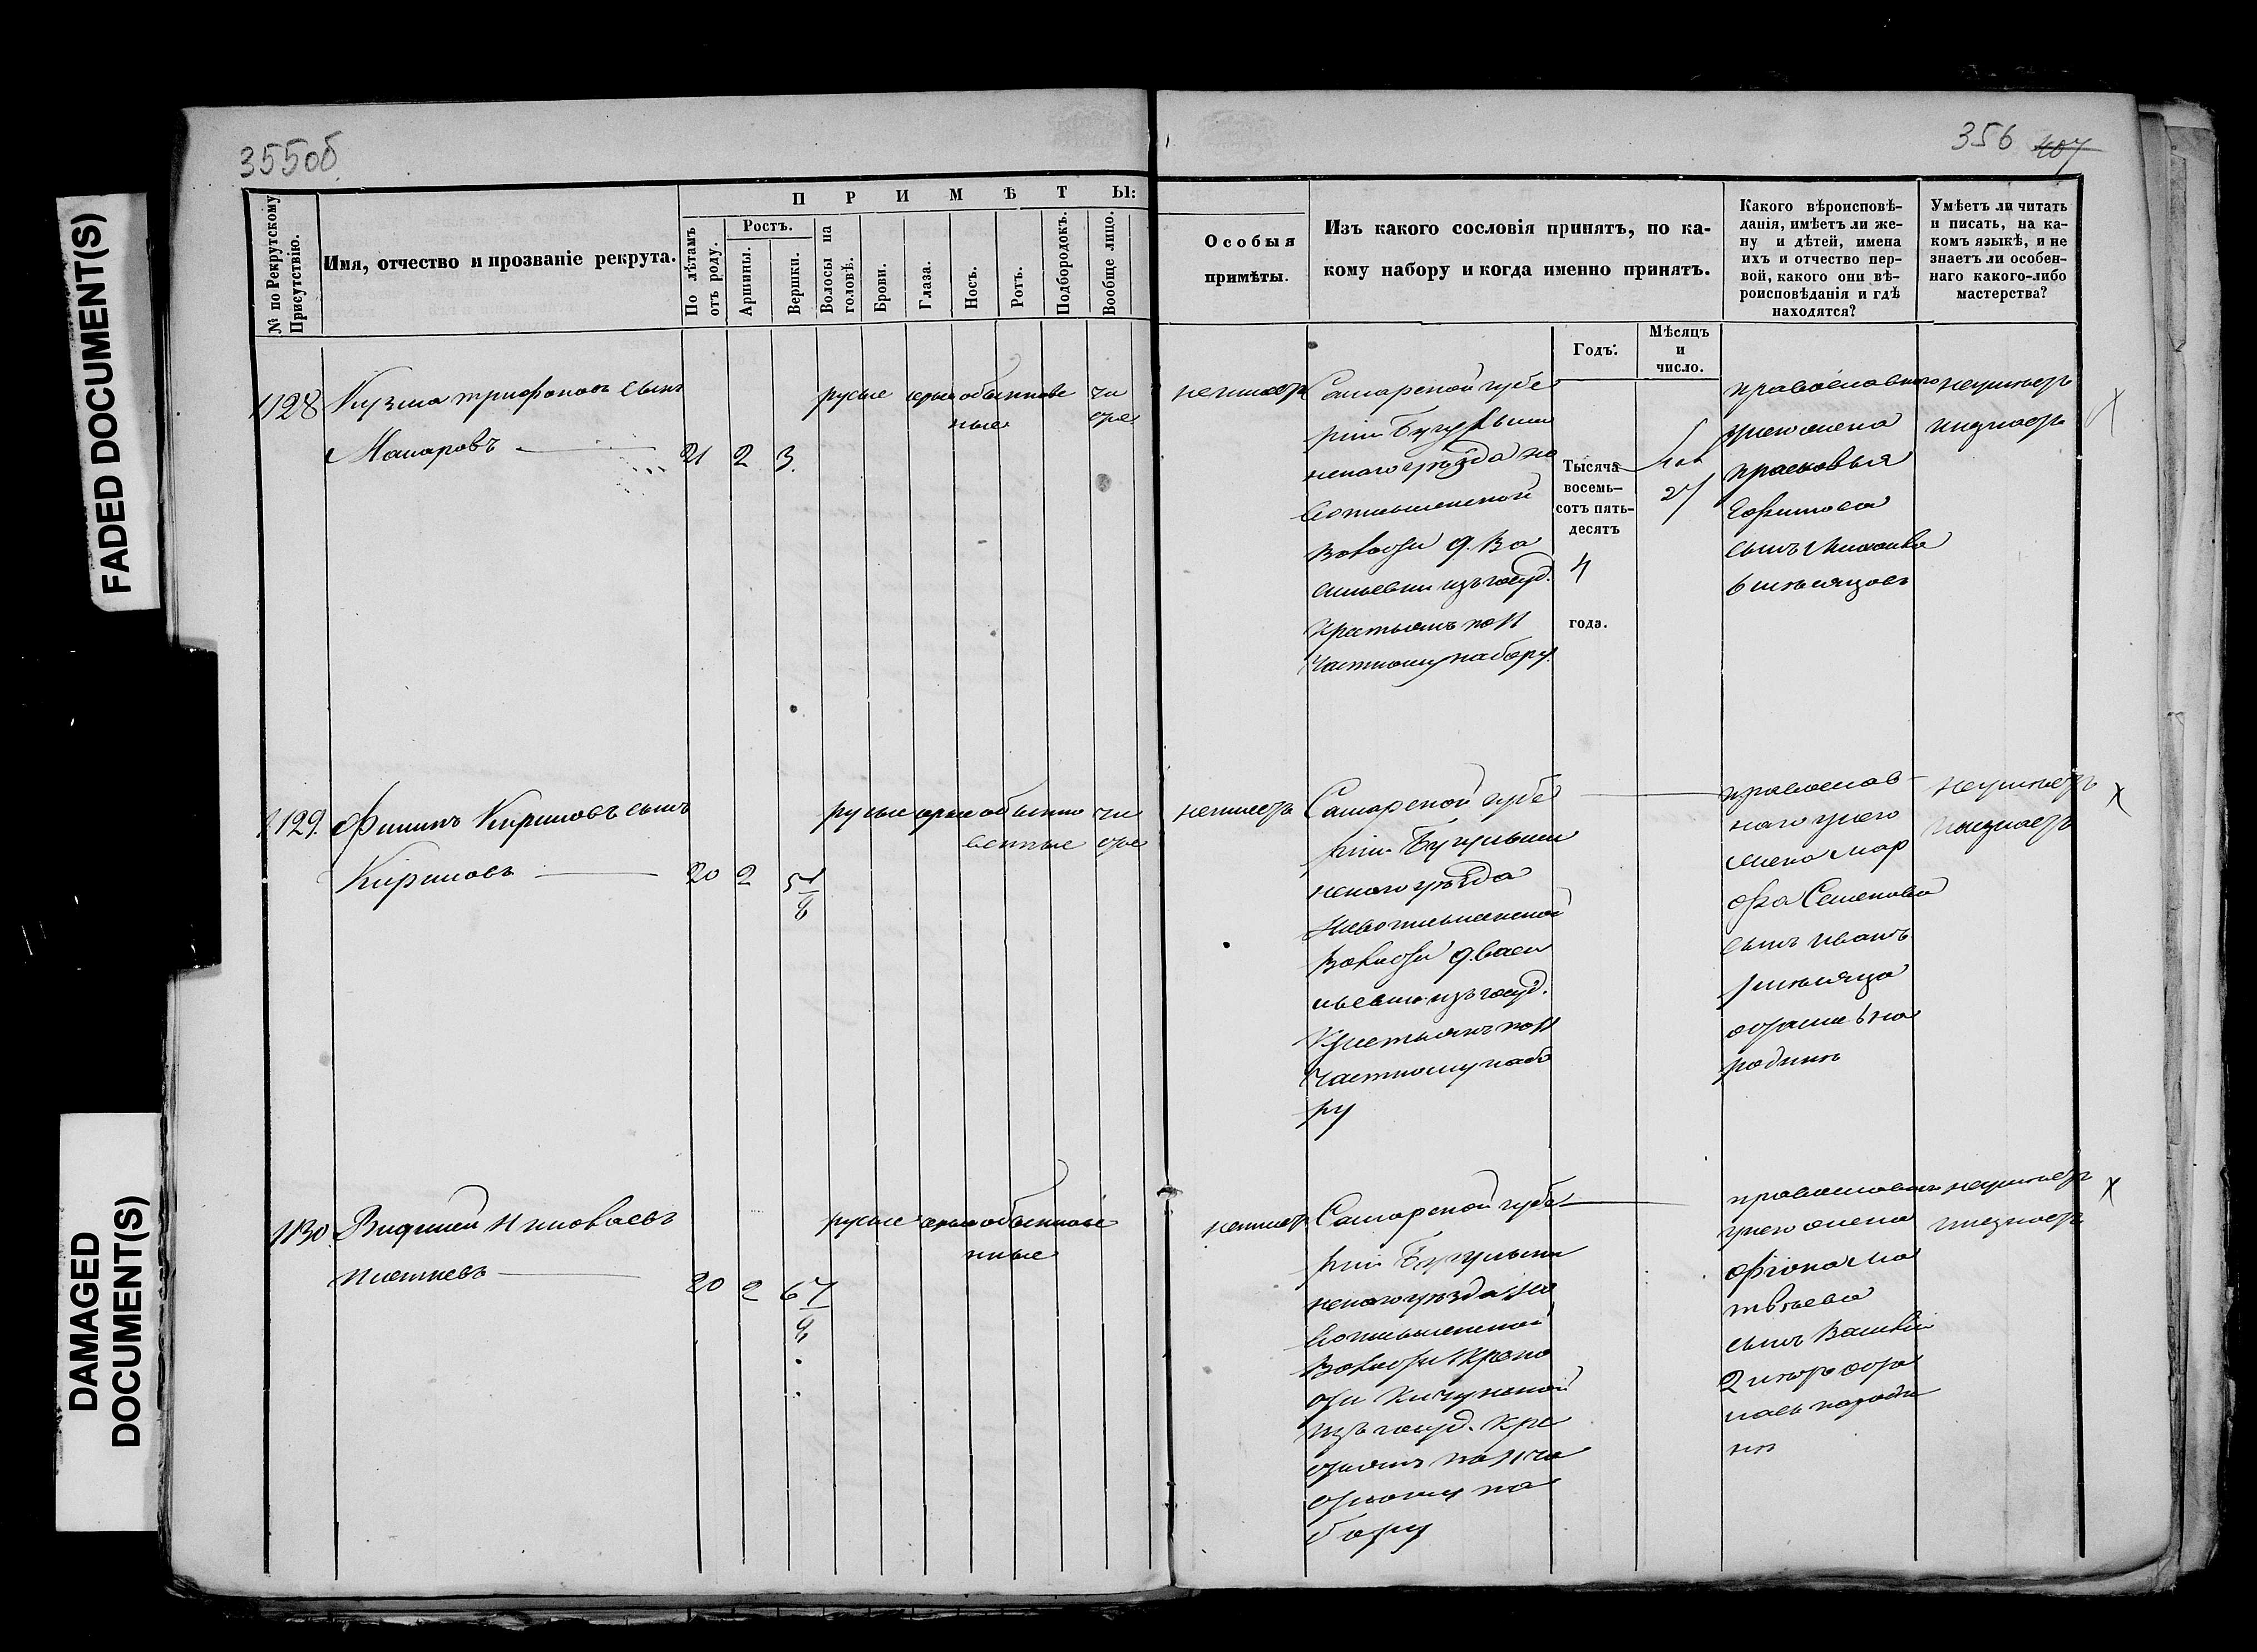 FADED DOCUMENT(S)
DAMAGED
DOCUMENT(S)
355об
356 407
№ по Рекрутскому
Присутствію.
Имя, отчество и прозваніе рекрута.
ПРИМѢТЫ:
По лѣтамъ
отъ роду.
Ростъ.
Аршины.
Вершки.
Волосы на
головѣ.
Брови.
Глаза.
Носъ.
Ротъ.
Подбородокъ.
Вообще лицо.
Особыя
примѣты.
Изъ какого сословія принятъ, по ка-
кому набору и когда именно принятъ.
Годъ:
Мѣсяцъ
и
число.
Какого вѣроисповѣ-
данія, имѣетъ ли же-
ну и дѣтей, имена
ихъ и отчество пер-
вой, какого они вѣ-
роисповѣданія и гдѣ
находятся?
Умѣетъ ли читать
и писать, на ка-
комъ языкѣ, и не
знаетъ ли особен-
наго какого-либо
мастерства?
1128
Кузма трифоновъ сынъ
Макаровъ
21 2 3
русые серые обыкнове
нные
чи
стое
неимеетъ
Самарской губе
рніи Бугульмин
скаго уѣзда но
вописьменской
волости д. Ва
сильевки изъ госуд.
крестьянъ по 11
частному набору.
Тысяча
восемь-
сотъ пять-
десятъ
4
года.
Ноя
27
православного
у него жена
прасковья
Ефимова
сынъ Михаила
6 мѣсяцовъ
неумѣетъ
инезнаетъ
1129.
Филипъ Кириловъ сынъ
Кириловъ
20 2 5 1/8
русые серые обыкно
венные
чи
стое
неимеетъ
Самарской губе
рніи Бугульмин
скаго уѣзда
Новописьменской
волости д. васи
льевки изъ госуд.
Крестьянъ по 11
Частному набо
ру
православ
наго у него
жена Мар
фа Семенова
сынъ иванъ
1 мѣсяца
остались на
родинѣ
неумѣетъ
инезнаетъ
1130
20 2 6 7/8
русые серые обыкнове
нные
неимеетъ
Самарской губе
рніи Бугульмин
скаго уѣзда Но
вописьменской
волости крепо
сти Кичуйской
изъ госуд. кре
стьянъ по 11 ча
стному на
бору
православнаго
у него жена
Ма
твѣева
сынъ Василій
2 лѣтъ оста
лась народи
нѣ
неумѣетъ
инезнаетъ